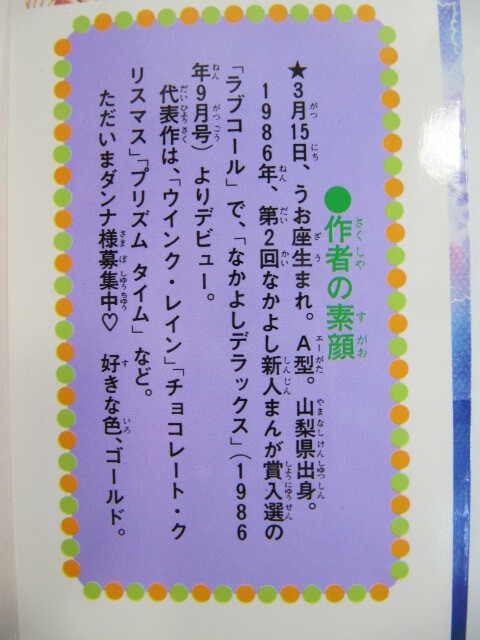 ●作者の素顔
★3月15日、うお座生まれ。A型。山梨県出身。
1986年、第2回なかよし新人まんが賞入選の
「ラブコール」で、「なかよしデラックス」(1986
年9月号)よりデビュー。
代表作は、「ウインク・レイン」「チョコレート・ク
リスマス」「プリズム タイム」など。
ただいまダンナ様募集中♡ 好きな色、ゴールド。